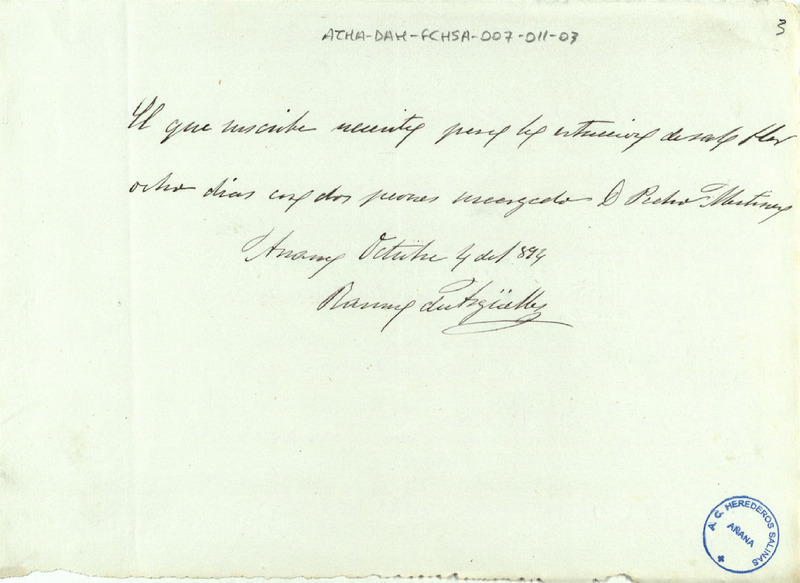 ATHA-DAH-FCHSA-007-011-03
3
El que suscribe necesita para la estraccion de sal flor
ocho dias con dos peones encargado D Pedro Martinez
Anana Octubre 4 del 894
Ramon de Argüelles
A. G. HEREDEROS SALINAS
AÑANA